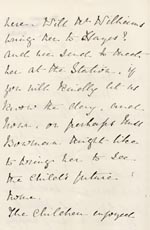 here. Will Mr Williams
bring her to Hayes?
and we send to meet
her at the Station, if
you will kindly let us
know the day, and
hour, or perhaps Miss
Bowman might like
to bring her to see
the child's future
home.
The Children enjoyed